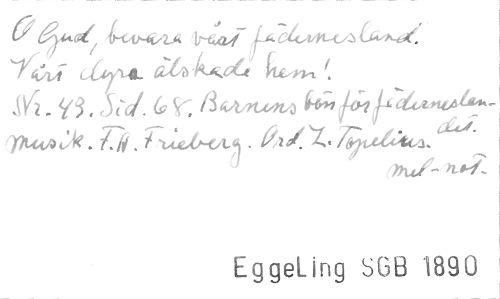 O Gud, bevara vårt fädernesland.
Vårt dyra älskade hem!
Nr. 49. Sid. 68. Barnens bön för fäderneslan-
det.
musik. F.A. Frieberg. Ord. Z. Topelius.
mel-not-
EggeLing SGB 1890